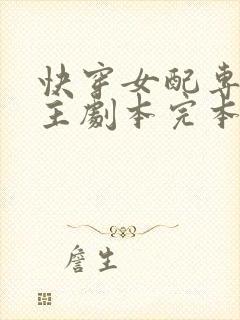 快穿女配专
主劇本完本
詹生